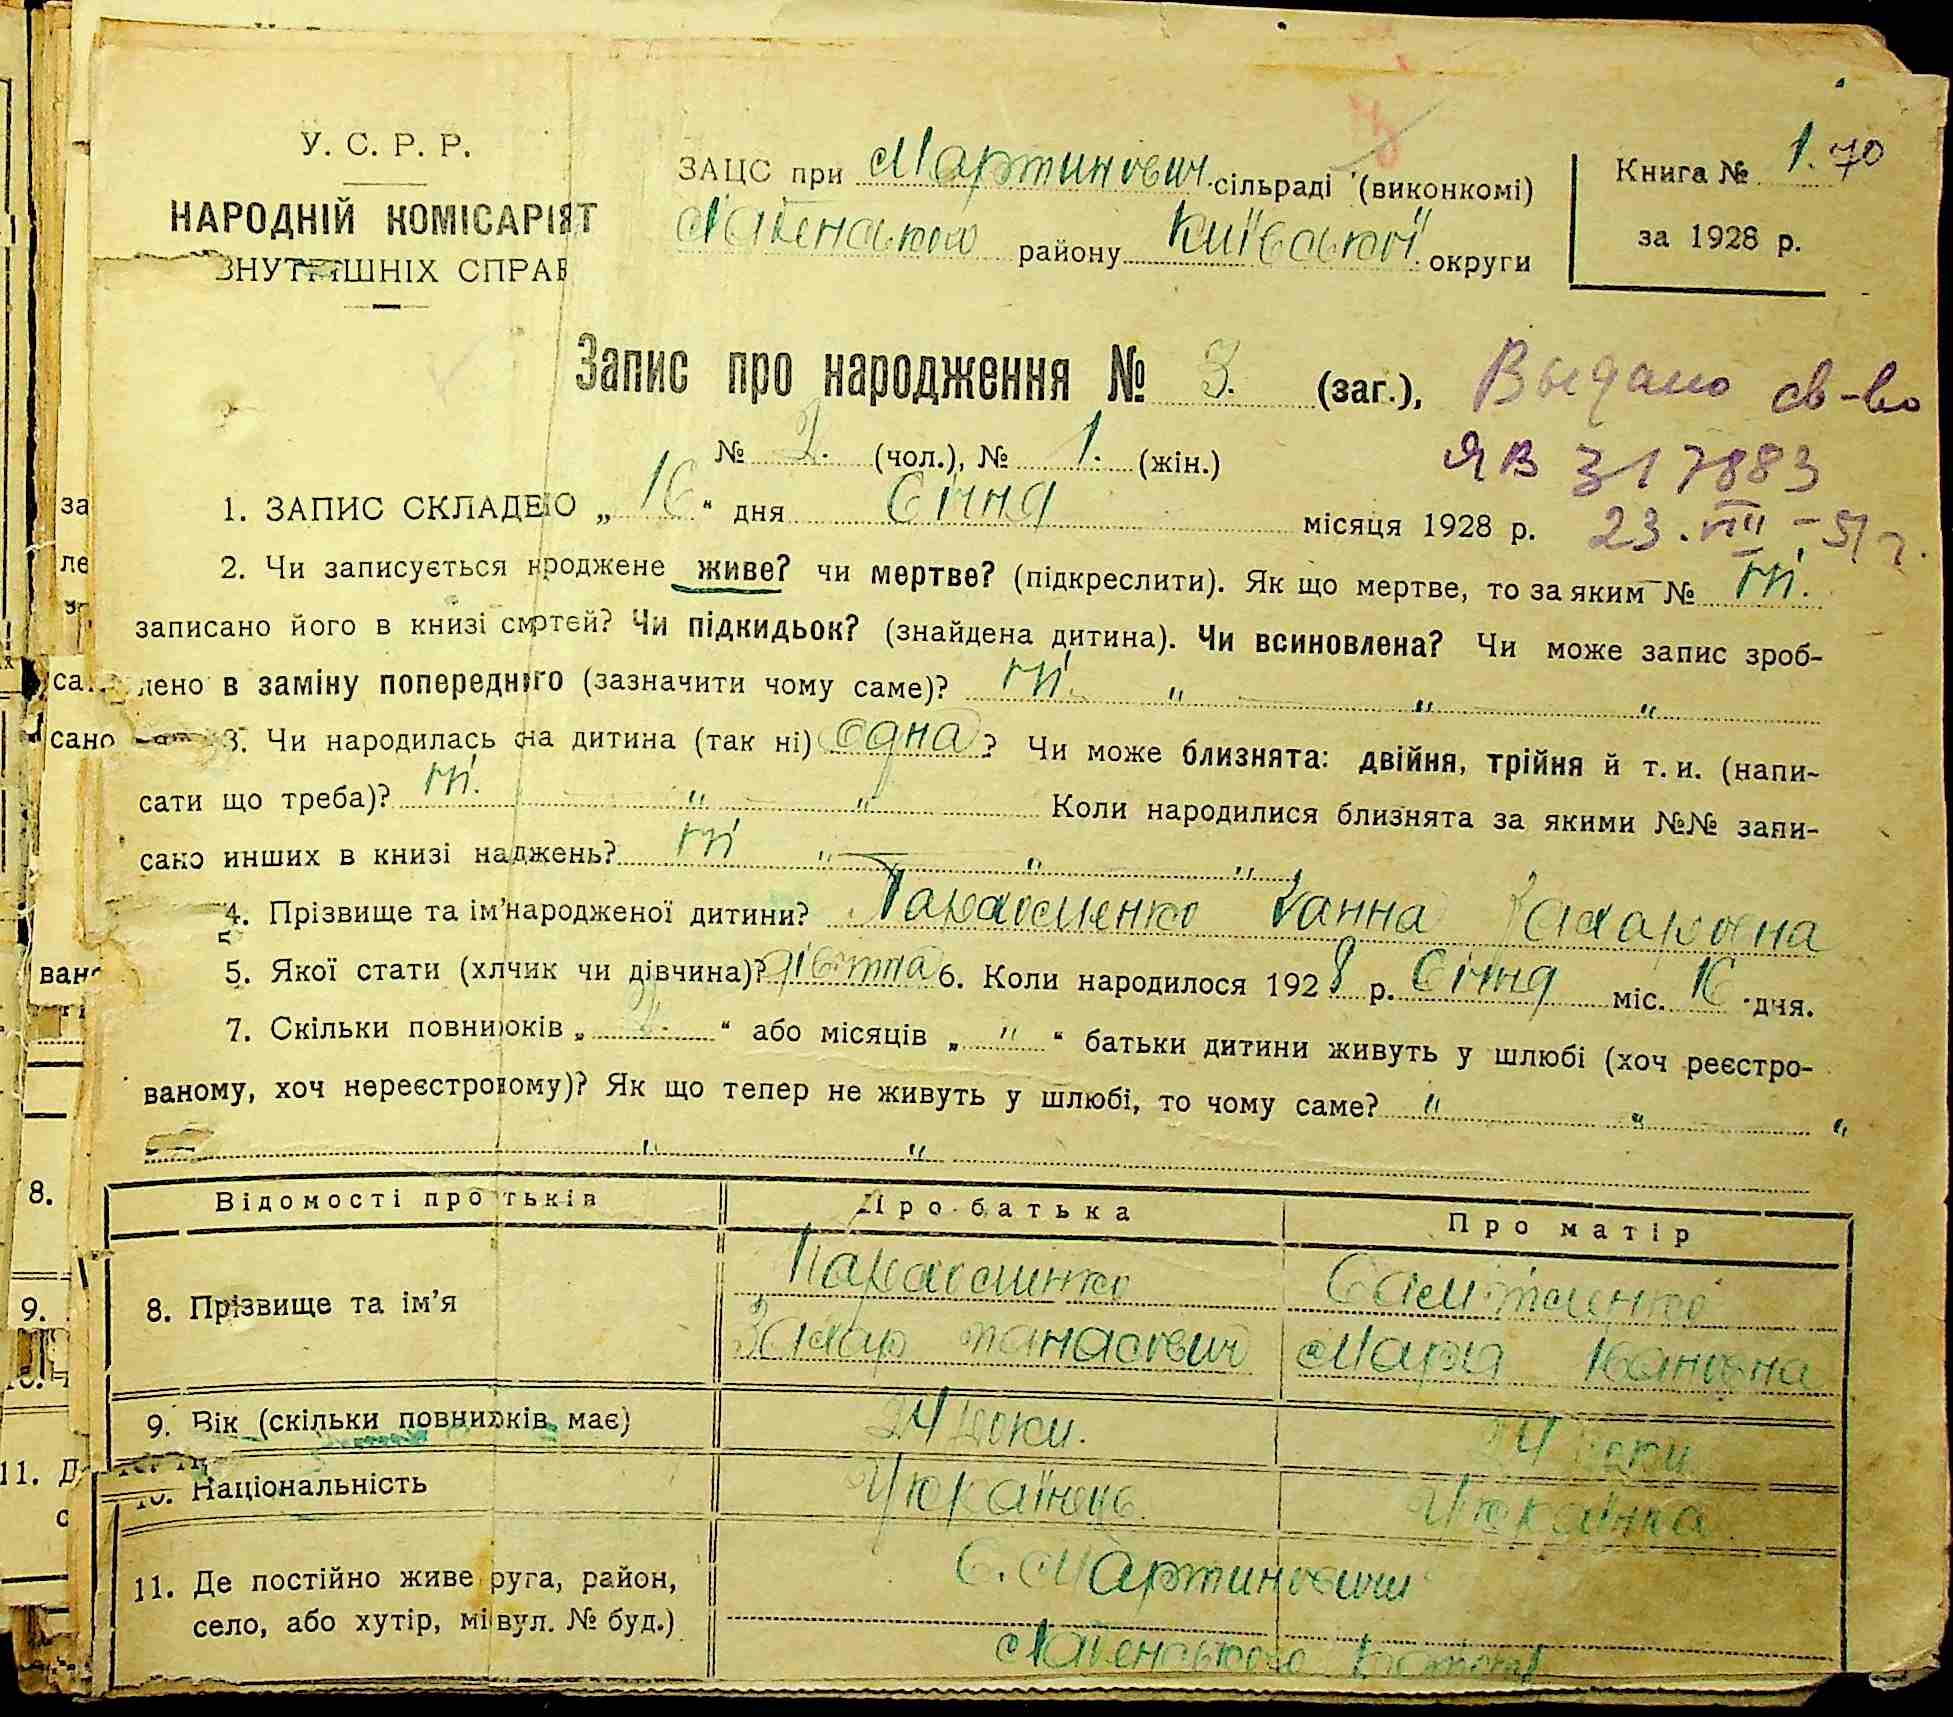 У. С. Р. Р.
НАРОДНІЙ КОМІСАРІЯТ
ВНУТРІШНІХ СПРАВ
ЗАЦС при Мартинович. сільраді (виконкомі)
району Київської округи
Книга № 1. 70
за 1928 р.
Запис про народження № 3. (заг.),
№ 2. (чол.), № 1. (жін.)
Выдано св-во
ЯВ 317883
23. VIII – 51 г.
1. ЗАПИС СКЛАДЕНО „ 16 “ дня Січня місяця 1928 р.
2. Чи записується нроджене живе? чи мертве? (підкреслити). Як що мертве, то за яким № ні.
записано його в книзі смртей? Чи підкидьок? (знайдена дитина). Чи всиновлена? Чи може запис зроб-
лено в заміну попереднго (зазначити чому саме)? ні. " " "
3. Чи народилась на дитина (так ні) одна? Чи може близнята: двійня, трійня й т. и. (напи-
сати що треба)? ні. " " Коли народилися близнята за якими №№ запи-
сано инших в книзі наджень? ні " " "
4. Прізвище та ім'народженої дитини? Параосменко Ганна Захаровна
5. Якої стати (хлчик чи дівчина)? дівчина 6. Коли народилося 1928 р. Січня міс. 16 дня.
7. Скільки повниюків „ 2. “ або місяців „ " “ батьки дитини живуть у шлюбі (хоч реєстро-
ваному, хоч нереєстроному)? Як що тепер не живуть у шлюбі, то чому саме? " " "
" "
Відомості про тьків Про батька Про матір
8. Прізвище та ім'я
Захар Панасович Марія Івановна
9. Вік (скільки повників має) 24 роки. 24 роки
10. Національність Українець. Українка
11. Де постійно живе руга, район,
село, або хутір, мі вул. № буд.)
С. Мартиновичи